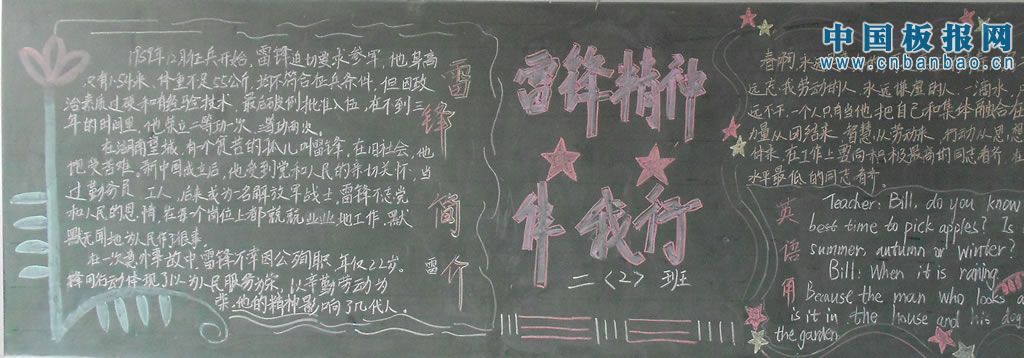 1959年12月征兵开始，雷锋迫切要求参军，他身高
只有1.54米，体重不足55公斤，均不符合征兵条件，但因政
治素质过硬和有经验技术，最后破例批准入伍，在不到三
年的时间里，他荣立二等功一次，三等功两次。
在湖南望城，有个贫苦的孤儿叫雷锋，在旧社会，他
饱受苦难。新中国成立后，他受到党和人民的亲切关怀，当
过勤务员 工人，后来成为一名解放军战士，雷锋不忘党
和人民的恩情，在每个岗位上都兢兢业业地工作，默
默无闻地为人民作了很事。
在一次意外事故中，雷锋不幸因公殉职，年仅22岁。
雷锋同志行动体现了以为人民服务为荣，以辛勤劳动为
荣，他的精神影响了几代人。
雷锋简介
雷
雷锋精神
伴我行
二〈2〉班
中国板报网
www.cnbanbao.cn
春雨永远
远志我劳动的人，永远谦虚的人，一滴水，只
远不干，一个人只有当他把自己和集体融合在
力量从团结来，智慧从劳动来，行动从思想
件来，在工作上要向积极最高的同志看齐，在
水平最低的同志看齐。
英语用
Teacher: Bill, do you know
best time to pick apples? Is
summer, autumn or winter?
Bill: When it is raning
Because the man who looks a
is it in the house and his dog
the garden